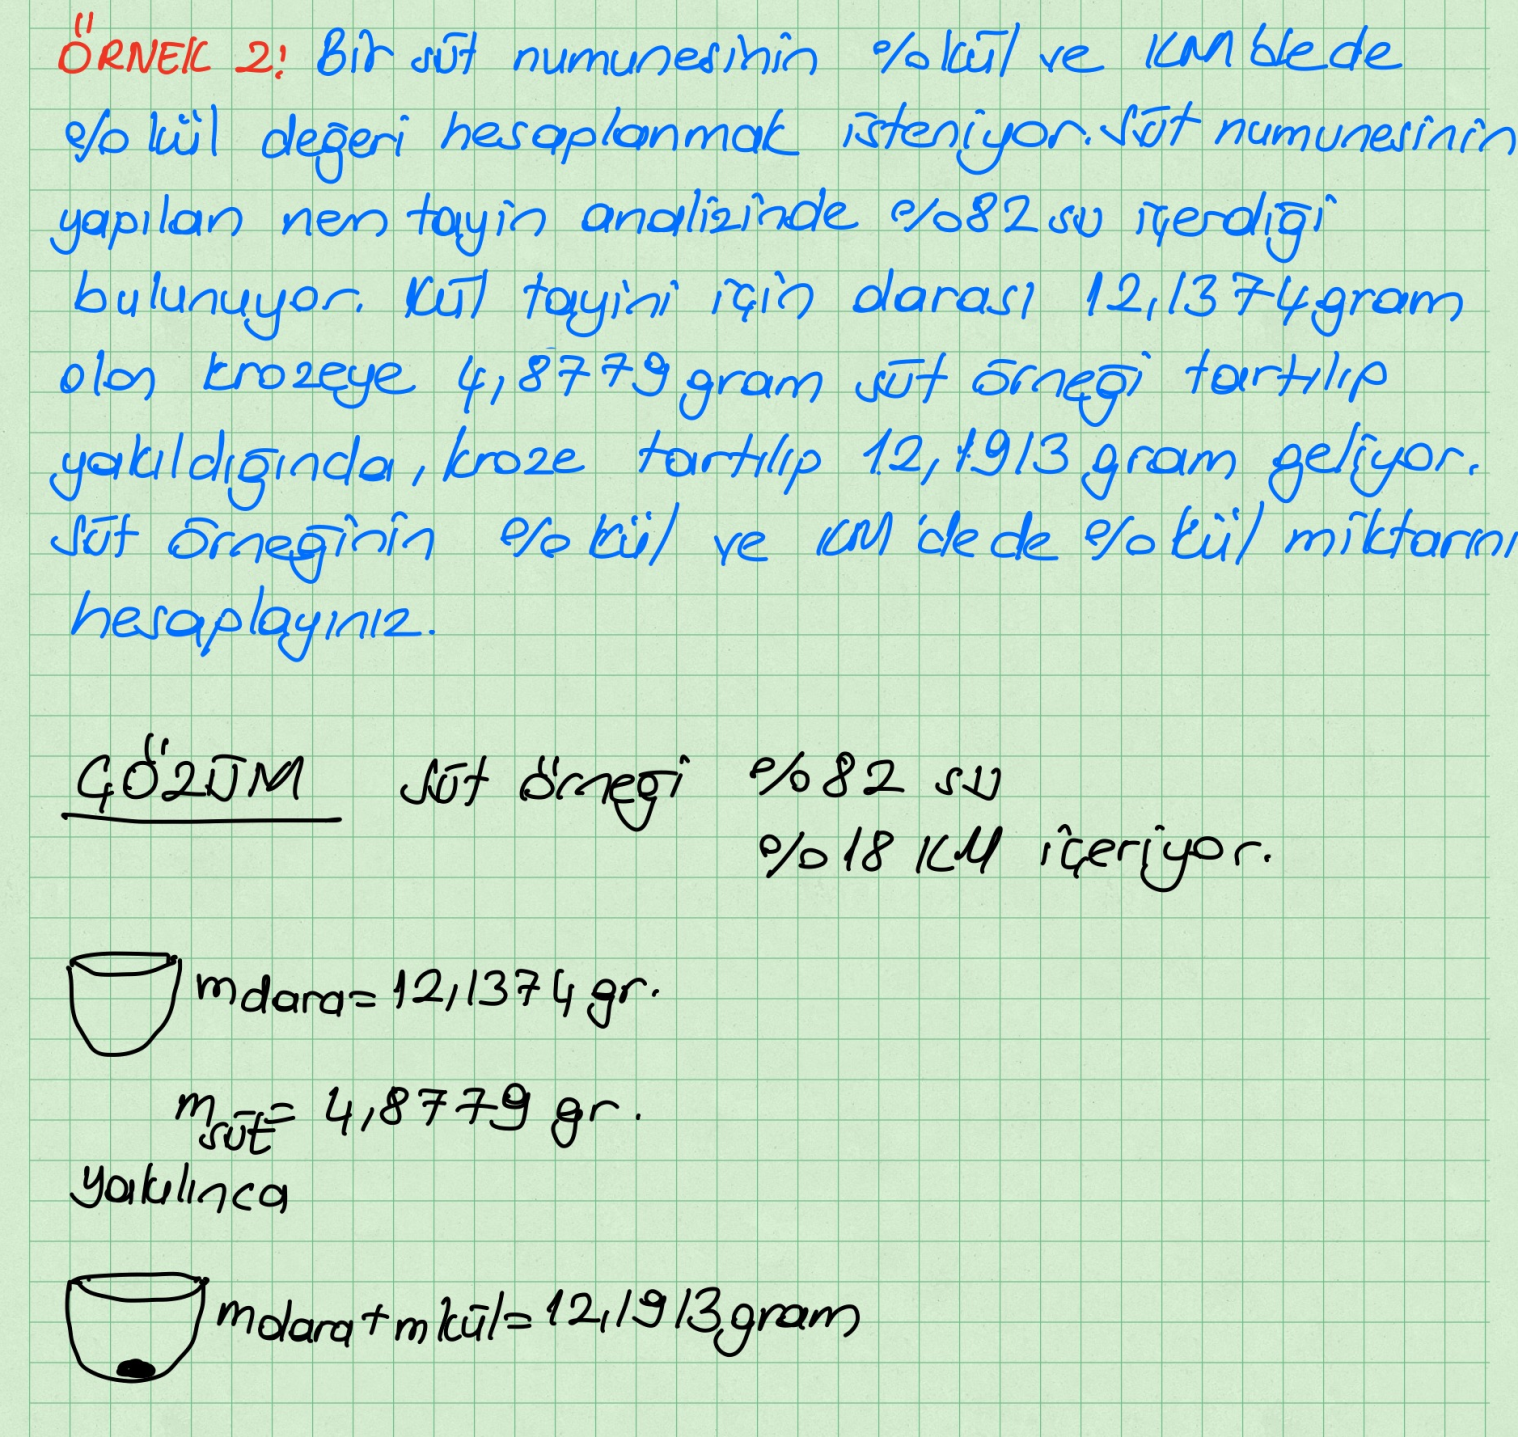 ÖRNEK 2! Bir süt numunesinin %kül ve KM'de de
%kül değeri hesaplanmak isteniyor. Süt numunesinin
yapılan nem tayin analizinde %82 su içerdiği
bulunuyor. Kül tayini için darası 12,1374 gram
olan krozeye 4,8779 gram süt örneği tartılıp
yakıldığında, kroze tartılıp 12,1913 gram geliyor.
Süt örneğinin %kül ve KM'de de %kül miktarını
hesaplayınız.
ÇÖZÜM Süt örneği %82 su
%18 KM içeriyor.
mdara= 12,1374 gr.
msüt= 4,8779 gr.
yakılınca
mdara+mkül= 12,1913 gram